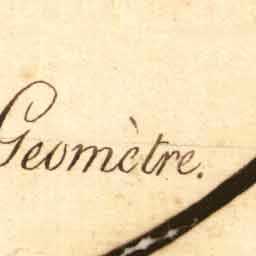 Geomètre.